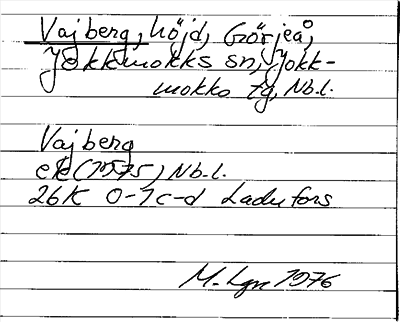 Vajberg, höjd, Görjeå,
Jokkmokks sn, Jokk-
mokks tg, Nb.l.
Vajberg
ek (1975), Nb.l.
26K 0-1c-d Ladufors
M. Lgn 1976